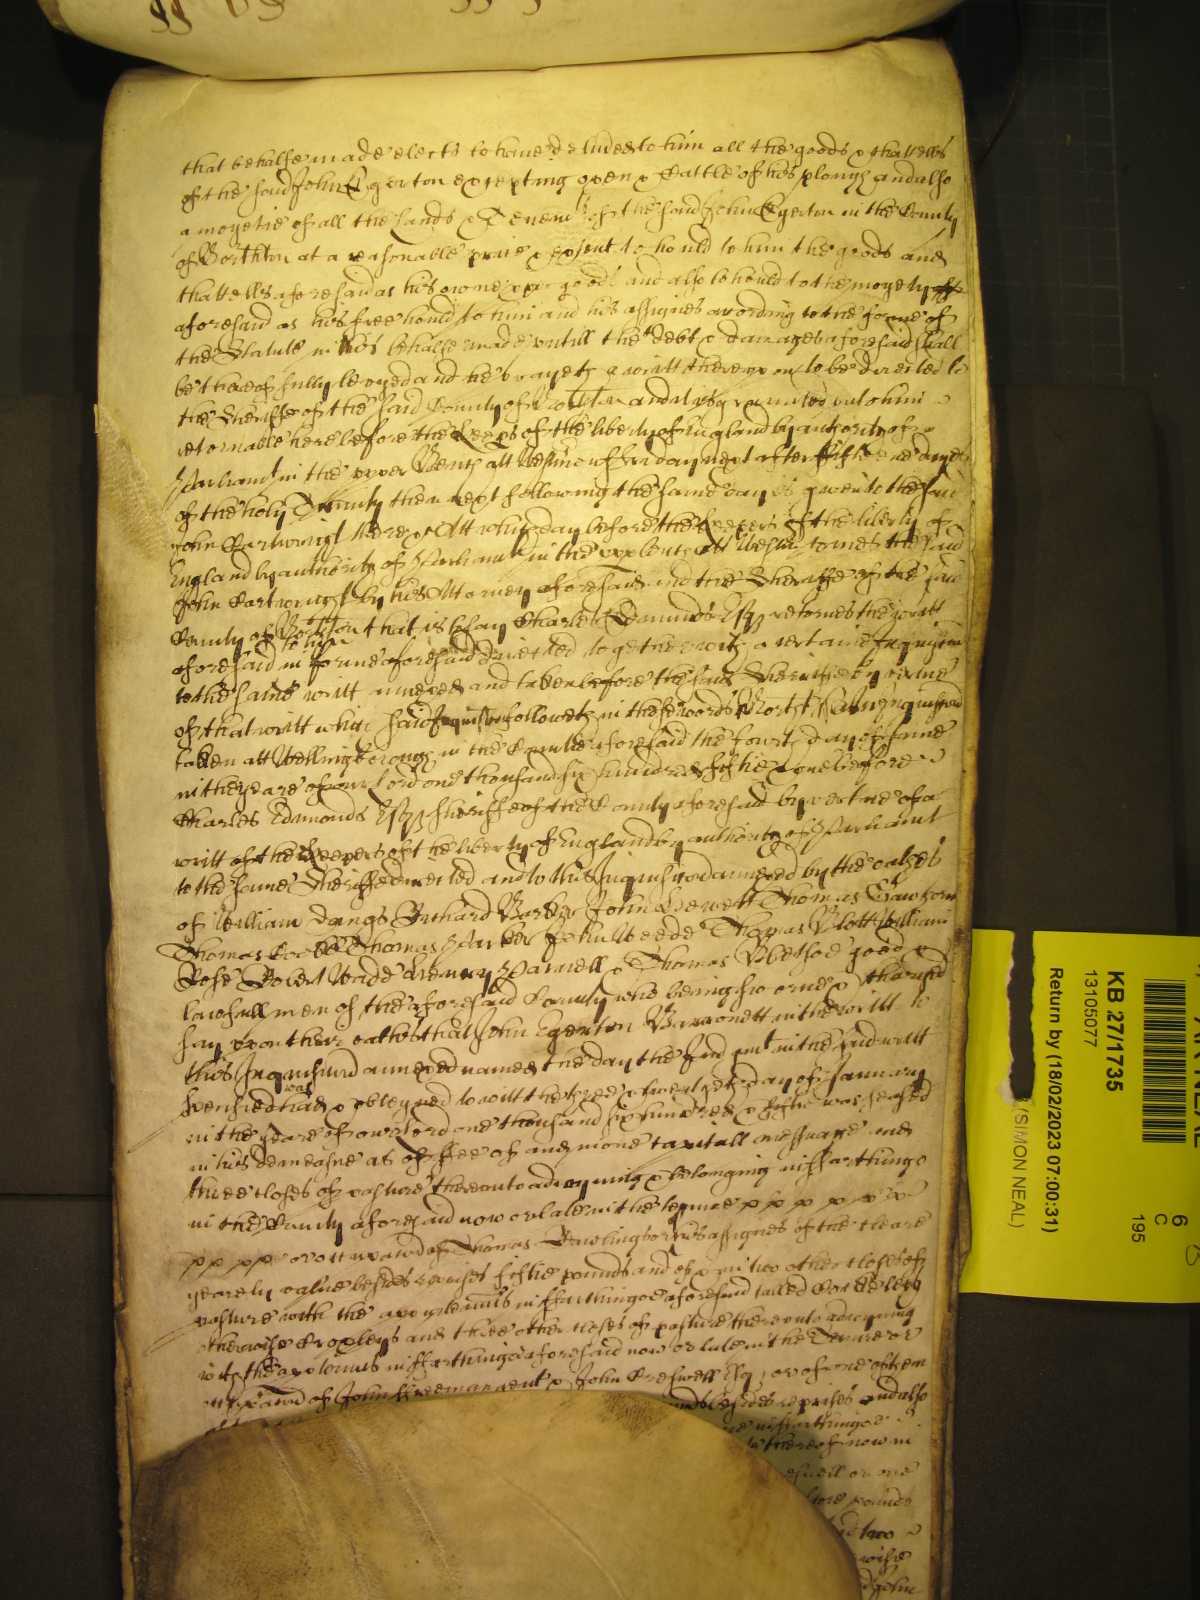 that behalfe made elects to have deliuered to him all the goods & chattells
of the said John Egerton excepting oxen & Cattle of his plough and also
a moyetie of all the lands & Tenemts of the said John Egerton in the County
of Northton at a reasonable price & extent to hould to him the goods and
chattells aforesaid as his owne pper goods and also to hould to the moyety
aforesaid as his freehould to him and his assignes according to the forme of
the Statute in this behalfe made untill the debt & damages aforesaid shall
be thereof fully levyed and he prayeth a writt thereupon to be directed to
the Sheriffe of the said County of Northton and it is graunted unto him
retornable here before the Keeps of the liberty of England by authority of
Parliamt in the upper Bench att Westmr on fryday next after fifteene dayes
of the holy Trinity then next following the same day is given to the said
John Cartwright there &c Att which day before the Keepers of the liberty of
England by authority of Parliamt in the upper bench att Westmr comes the said
John Cartwright by his Attorney aforesaid and the Sheriffe of the said
County of Northton that is to say Charles Edmunds Esqr retornes the writt
aforesaid to him in forme aforesaid directed together with a certaine Inquisicon
to the same writt annexed and taken before the said Sheriffe by vertue
of that writt which said Inquisicon followeth in these words Northt ss An Inquisicon
taken att Wellingborough in the Countie aforesaid the fourth day of June
in the yeare of our Lord one thousand six hundred fiftie & one before
Charles Edmonds Esqr sheriffe of the County aforesaid by vertue of a
writt of the Keepers of the liberty of England by authority of Parliamt
to the same Sheriffe directed and to this Inquisicon annexed by the oathes
of William Dangs Richard Barker John Hewett Thomas
Thomas Thomas Parker John Weede Thomas Blott William
Rose Robert Wade Henry Parnell & Thomas Bletsoe good &
lawfull men of the aforesaid County who being sworne & charged
say upon there oathes that John Egerton Barronett in the writt to
this Inquisicon annexed named the day the Judgmt in the said writt
specified was had & obteyned to witt the three & twentyeth day of January
in the yeare of our Lord one thousand six hundred & fiftie was seased
in his demeasne as of ffee of and in one capitall messuage and
three closes of pasture thereunto adioyning & belonging in ffarthingo
in the County aforesaid now or late in the tenure
or occupacon of Thomas Rawlings or his assignes of the cleare
yearely value besides reprises fiftie pounds and of & in two other closes of
pasture with the appurtenncs in ffarthingoe aforesaid called
otherwise Cropleys and three other closes of pasture thereunto adioyning
with the appurtenncs in ffarthingoe aforesaid now or late in the Tenure or
occupacon of John gent & John Creswell Esqr or of one of them
nds besides reprises and also
in ffarthingoe
thereof now in
eswell or one
pounds
two
wise
John
KB 27/1735
13105077
Return by (18/02/2023 07:00:31)
(SIMON NEAL)
6
C
195